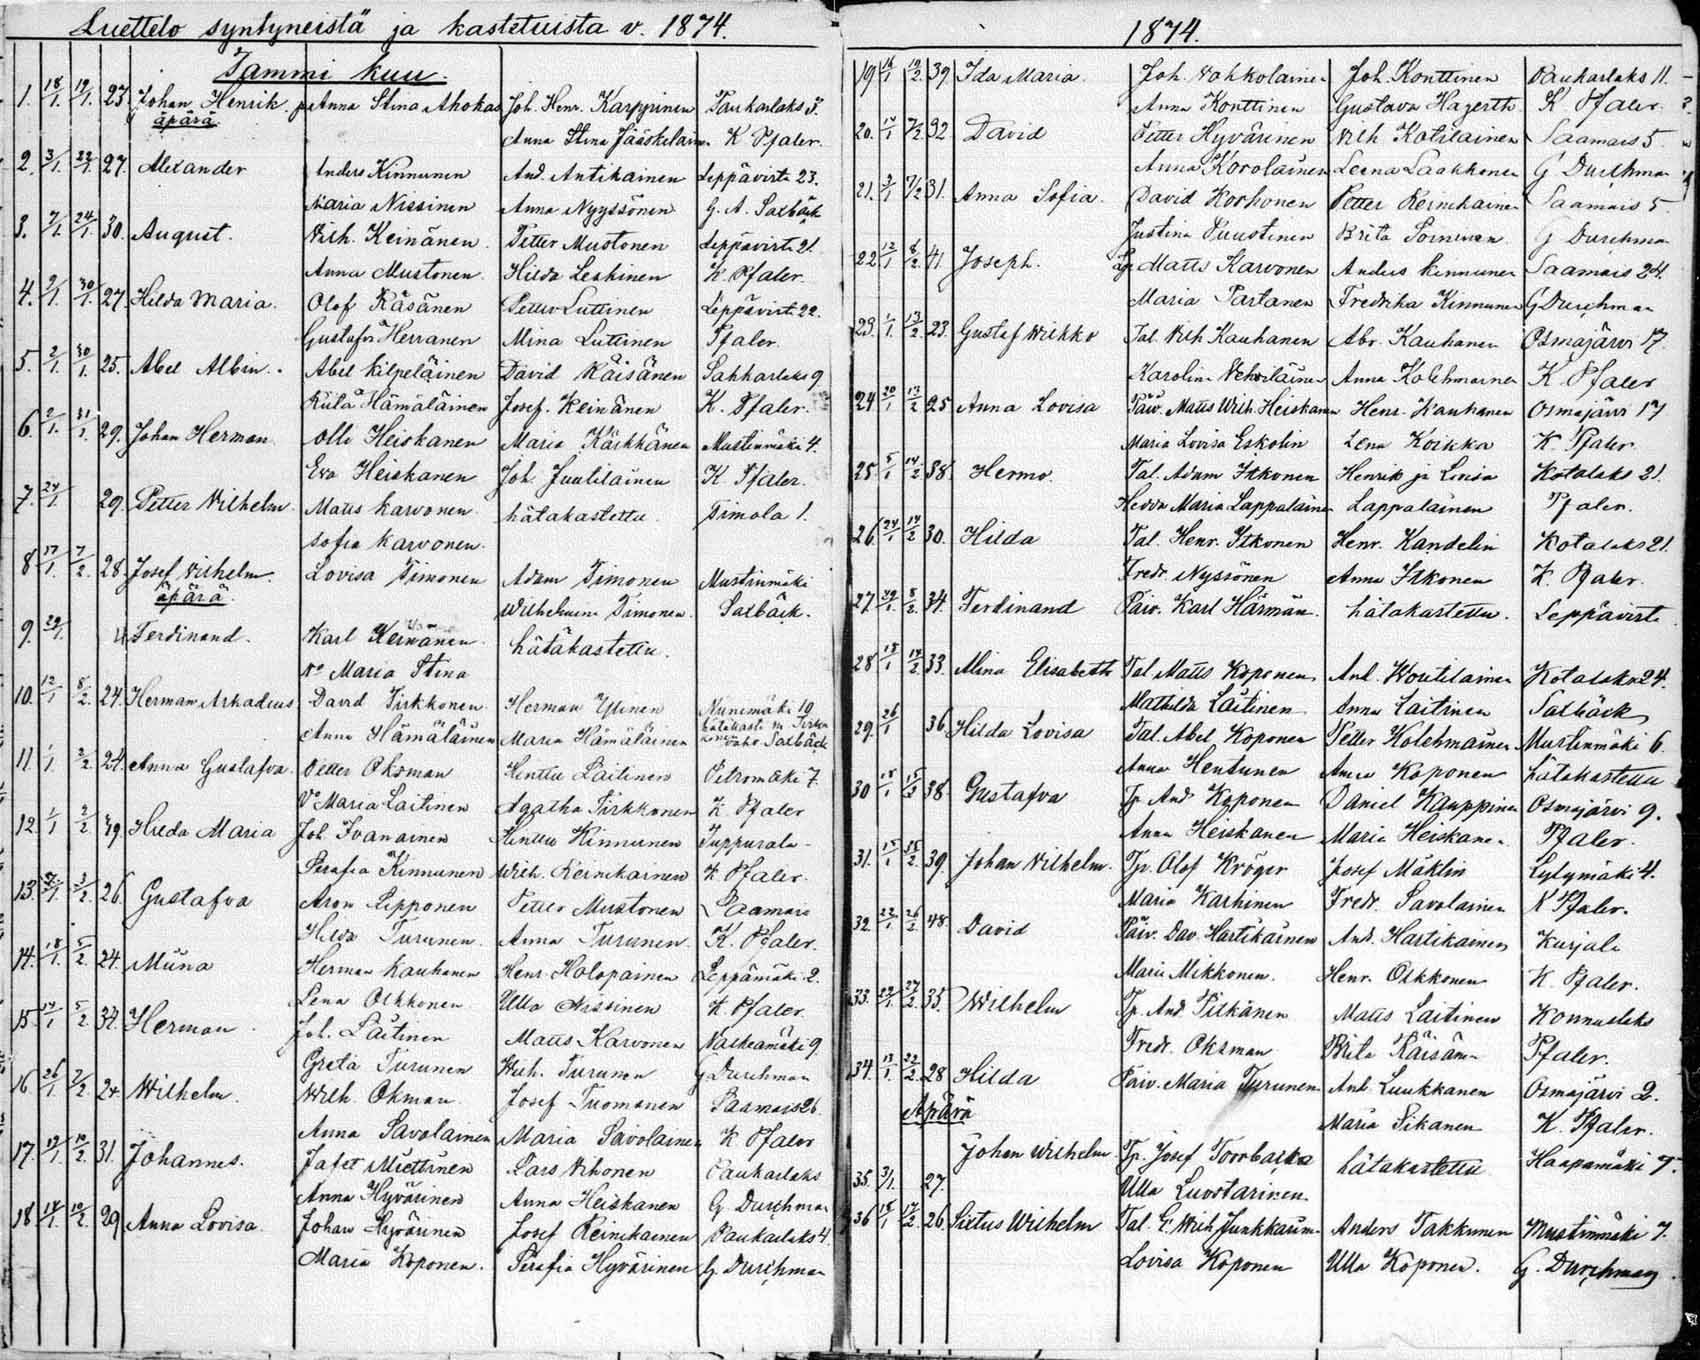 Luettelo syntyneistä ja kastetuista v. 1874.
Tammi kuu.
1. 18/1. 19/1. 23 Johan Henrik Anna Stina Ahokas Joh. Henr. Karppinen Paukarlaks 3.
äpärä Anna Stina Jääskeläinen K Pfaler.
2. 3/1 27. Alexander Anders Kinnunen And. Antikainen Leppävirta 23.
Maria Nissinen Anna Nyyssönen G. A. Saxbäck
3. 7/1. 24/1. 30. August. Wilh. Keinänen Petter Mustonen Leppävirta 21.
Anna Mustonen Hilda Leskinen K. Pfaler.
4. 2/1. 30/1. 27. Hilda Maria. Olof Räsänen Petter Luttinen Leppävirt. 22.
Gustafva Herranen Mina Luttinen Pfaler.
5. 2/1. 30/1. 25. Abel Albin. Abel Kilpeläinen David Räisänen Sahkarlaks 9
Riita Hämäläinen Josef. Keinänen K. Pfaler.
6. 2/1. 31/1. 29. Johan Herman. Olli Heiskanen Maria Kärkkänen Mustinmäki 4.
Eva Heiskanen Joh. Juutilainen K Pfaler.
7. 24/1 29. Petter Wilhelm Matts Karvonen hätäkastettu. Timola 1.
Sofia Karvonen.
8 17/1. 7/2. 28. Josef Wilhelm. Lovisa Timonen Adam Timonen Mustinmäki
äpärä. Wilhelmina Timonen. Saxbäck.
9. 29/1. Ferdinand. Karl hätäkastettu.
Maria Stina
10. 12/1 8/2. 24. Herman Arkadius David Pirkkonen Herman Ylinen Nunimäki 19
Anna Hämäläinen Maria Hämäläinen Saxbäck
11. 1/1. 2/2 24. Anna Gustafva. Petter Oksman Henttu Laitinen Petromäki 7.
Maria Laitinen Agatha Pirkkonen K Pfaler
12. 1/1 2/2 Hilda Maria Joh Ivanainen Henttu Kinnunen Tuppurala
Serafia Kinnunen Wilh. Reinikainen K Pfaler.
13. 3/2 26. Gustafva Aron Lipponen Petter Mustonen Saamais
Hilda Turunen. Anna Turunen. K. Pfaler.
14. 18/1. 5/2. 24. Miina Herman Kauhanen Henr. Holopainen Leppämäki 2.
Lena Olkkonen Ulla Nissinen K Pfaler.
15. 14/1. 5/2. 34. Herman Joh. Laitinen Matts Karvonen 9
Greta Turunen Wilh. Turunen G Durchman
16. 26/1 7/2. 24. Wilhelm. Wilh. Okman. Josef Tuomanen Saamais 26.
Anna Savolainen Maria Savolainen K Pfaler
17. 19/1. 10/2. 31. Johannes. Jafet Miettinen Lars Vihonen Paukarlaks
Anna Hyvärinen Anna Heiskanen G. Durchman
18 14/1. 10/2. 29 Anna Lovisa. Johan Hyvärinen Josef Reinikainen Paukarlaks 4.
Maria Koponen. Serafia Hyvärinen G. Durchman
1874.
19 16/1 19/2. 39 Ida Maria. Joh. Vohkolainen Joh. Konttinen Paukarlaks 11.
Anna Konttinen Gustava Hagerth K Pfaler.
20. 14/1 7/2 32 David Petter Hyvärinen Wilh Kotilainen Saamais 5.
Anna Korolainen Leena Laakkonen G Durchman
21. 3/1 7/2 31. Anna Sofia. David Korhonen Petter Reinikainen Saamais 5.
Justina Puustinen Brita G Durchman
22 12/1 8/2 41 Joseph. Matts Karvonen Anders Kinnunen Saamais 24.
Maria Partanen Fredrika Kinnunen G Durchman
23. 1/1. 13/2. 23. Gustaf Wilkko Tal. Wilh Kauhanen Abr. Kauhanen Osmajärvi 17.
Karolina Vehviläinen Anna Kolehmainen K. Pfaler
24 20/1 13/2 25 Anna Lovisa Päiv. Matts Wilh. Heiskanen Henr. Kauhanen Osmajärvi 17
Maria Lovisa Eskolin Lena Koikka K Pfaler.
25 5/1 14/2 38. Hermo. Tal. Adam Itkonen Henrik ja Lovisa Kotalaks 21.
Hedda Maria Lappalainen Lappalainen Pfaler.
26. 24/1 14/2 30. Hilda Tal. Henr. Itkonen Henr. Kandelin Kotalaks 21.
Fredr. Nyssönen Anna Itkonen K. Pfaler.
27. 29/1 8/2 34. Ferdinand Päiv. Karl Härmän. hätäkastettu. Leppävirta
28 18/1 14/2 33. Mina Elisabeth Tal Matts Koponen And. Woutilainen Kotalaks 24.
Mathilda Laitinen Anna Laitinen Saxbäck
29. 26/1 36 Hilda Lovisa Tal. Abel Koponen Petter Kolehmainen Mustinmäki 6.
Anna Hentunen Anna Koponen hätäkastettu
30 18/1 15/2 38. Gustafva Tp And Koponen Daniel Kauppinen Osmajärvi 9.
Anna Heiskanen Maria Heiskanen Pfaler.
31. 15/1 15/2. 39. Johan Wilhelm. Tp. Olof Kröger Josef Mäklin Lylymäki 4.
Maria Karhinen Fredr. Savolainen K Pfaler.
32. 22/1 26/2 48. David Päiv. Dav. Hartikainen And. Hartikainen Kurjala
Maria Mikkonen. Henr. Olkkonen K. Pfaler.
33. 22/1 27/2. 35. Wilhelm Tp. And. Pitkänen Matts Laitinen Konnuslaks
Fredr. Oksman Brita Räisän Pfaler.
34. 13/1. 22/2. 28 Hilda Päiv. Maria Turunen And. Luukkanen Osmajärvi 2.
Äpärä Maria Sikanen K. Pfaler.
35. 31/1. 27. Johan Wilhelm Tp. Josef hätäkastettu Haapamäki 7.
Ulla Luostarinen
36 18/1 17/2. 26. Sixtus Wilhelm Tal. G. Wilh Junkkarin Anders Takkunen Mustinmäki 7.
Lovisa Koponen Ulla Koponen. G. Durchman